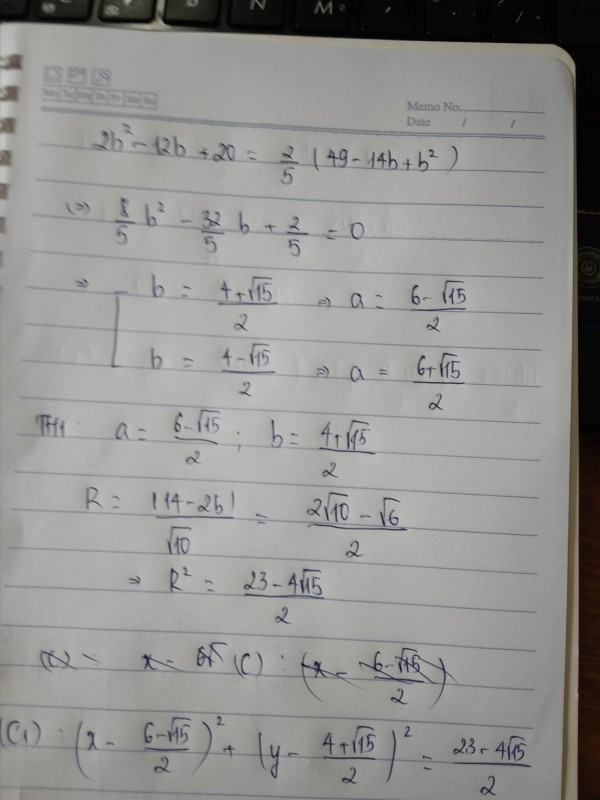 Mo Tu We Th Fr Sa Su
Memo No.
Date / /
2b² - 12b + 20 = 2/5 (49 - 14b + b²)
(⇒) 8/5 b² - 32/5 b + 2/5 = 0
⇒ b = (4+√15)/2 ⇒ a = (6-√15)/2
b = (4-√15)/2 ⇒ a = (6+√15)/2
TH1: a = (6-√15)/2 ; b = (4+√15)/2
R = |14-2b|/√10 = (2√10 - √6)/2
⇒ R² = (23 - 4√15)/2
(C) : (x - (6-√15)/2)
(C1) : (x - (6-√15)/2)² + (y - (4+√15)/2)² = (23 - 4√15)/2